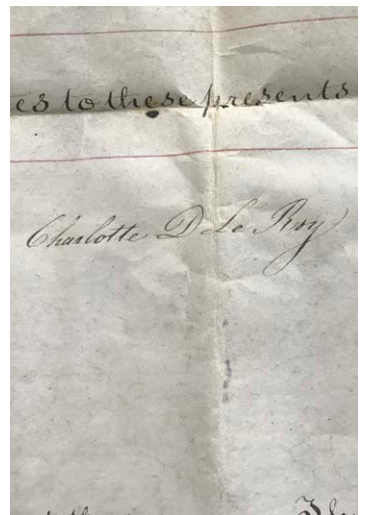 es to these presents
Charlotte D Le Roy